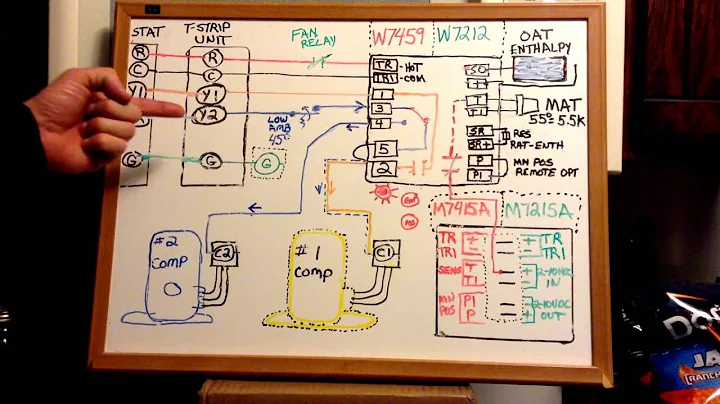 STAT
T-STRIP UNIT
FAN RELAY
W7459
W7212
OAT ENTHALPY
R
R
C
C
Y1
Y1
Y2
G
G
G
LOW AMB 45°
TR
-HOT
TR1
-COM
1
3
4
5
2
SO
+
T
T1
MAT
55° 5.5K
SR
SR+
RES
RAT-ENTH
P
P1
MN POS
REMOTE OPT
M7415A
M7215A
TR
+
+
TR
TR1
-
-
TR1
SENS
T
T1
+
-
2-10VDC
IN
MN POS
P1
P
+
-
2-10VDC
OUT
#2
COMP
C2
#1
COMP
C1
JA
RANCH